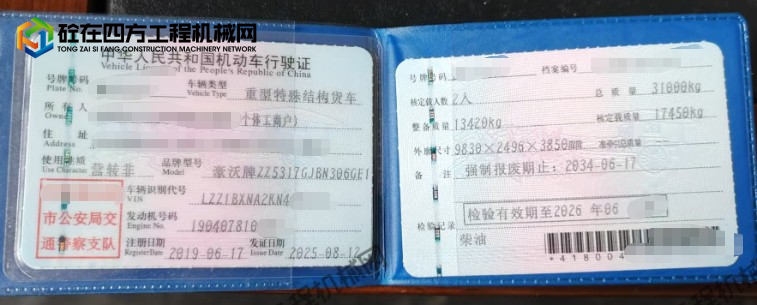 砼在四方工程机械网
TONG ZAI SI FANG CONSTRUCTION MACHINERY NETWORK
中华人民共和国机动车行驶证
Vehicle License of the People's Republic of China
号牌号码
Plate No.
车辆类型
Vehicle Type
重型特殊结构货车
所有人
Owner
个体工商户)
住址
Address
使用性质
Use Character
营转非
品牌型号
Model
豪沃牌ZZ5317GJBN306GE1
市公安局交
通警察支队
车辆识别代号
VIN
LZZ1BXNA2KN4
发动机号码
Engine No.
190407810
注册日期
Register Date
2019-06-17
发证日期
Issue Date
2025-08-12
号牌号码
档案编号
核定载人数 2人
总质量 31000kg
整备质量 13420kg
核定载质量 17450kg
外廓尺寸 9830×2496×3850mm
准牵引总质量
备注
强制报废期止:2034-06-17
检验记录
检验有效期至2026 年06
柴油
*418004